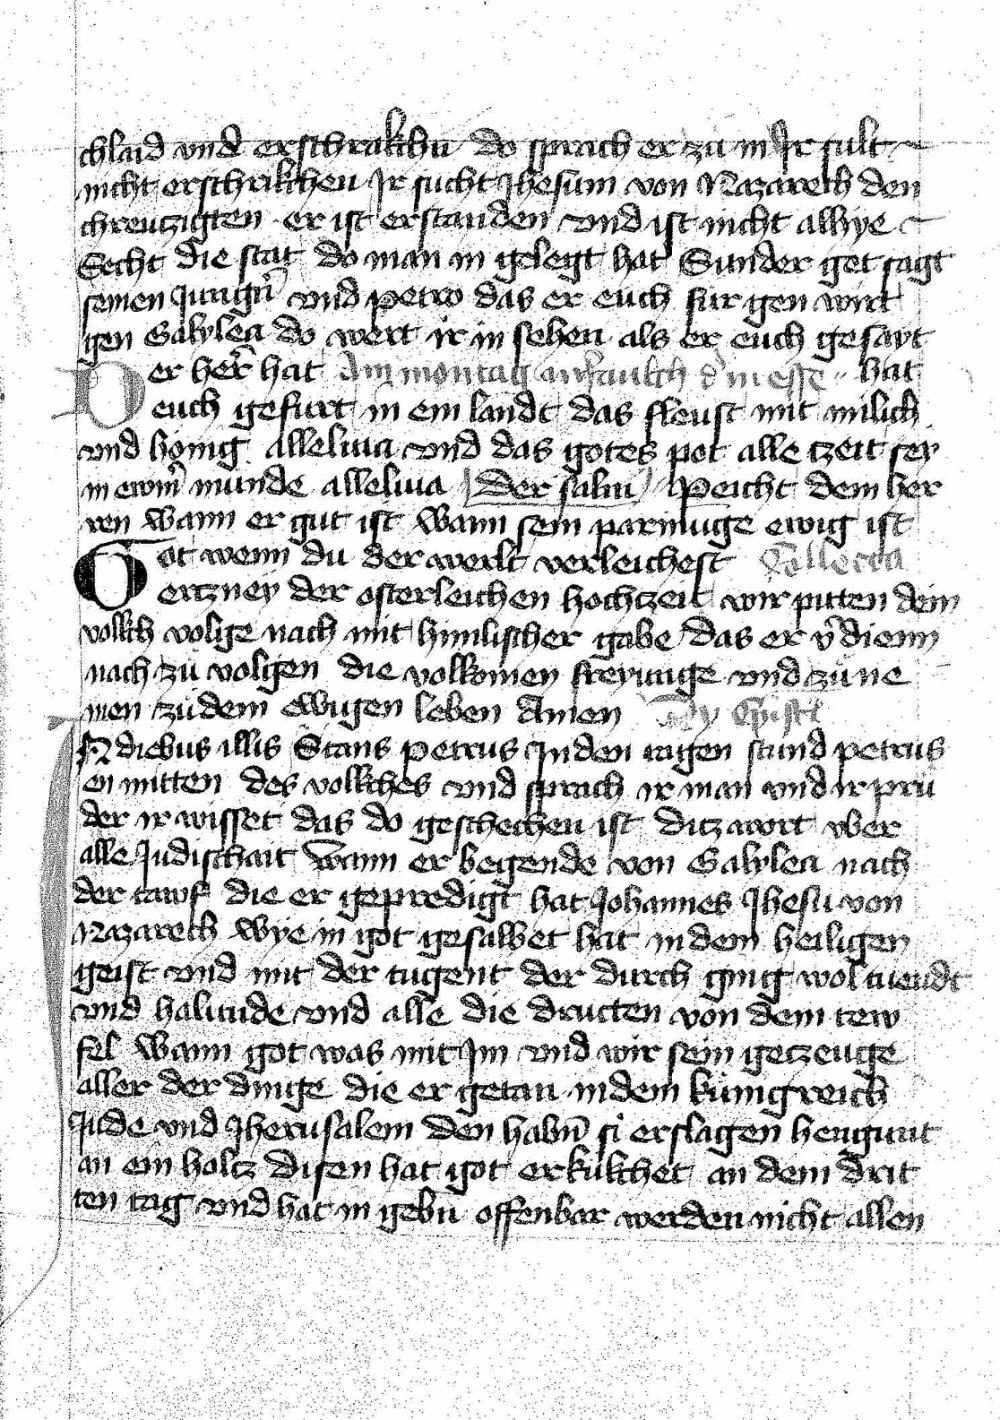 chlaid vnd erschrakchn do sprach er zu in Ir sult
nicht erschrikchen Ir sucht Jhesum von Nazareth den
chreutzigten er ist erstanden vnd ist nicht alhye
Secht die stat do man in gelegt hat Sunder get sagt
seinen Jungn̄ vnd petro das er euch fur gen wirt
gen Galylea do wert ir in sehen als er euch gesayt
er her̄ hat Am montag anfankch d̄ messe hat
Der
euch gefurt in ein landt das fleust mit milich
vnd honig alleluia vnd das gotes pot alle tzeit sey
in ewrm̄ munde alleluia Der salm Peicht dem her
ren wann er gut ist wann sein parmunge ewig ist
Got wenn du der werlt verleichest Collecta
ertzney der osterleichen hochtzeit wir pitten dein
volkch volige nach mit himlischer gabe das er v̄dienn
nach zu volgen die volkomen freyunge vnd zu ne
men zu dem ewigen leben Amen Dy Epistel
In diebus illis Stans petrus In den tagen stund petrus
en mitten des volkches vnd sprach ir man vnd ir pru
der ir wisset das do geschechen ist ditz wort vber
alle Judischait wann er begende von Galylea nach
der tawf die er gepredigt hat Johannes Jhesu von
Nazareth wye in got gesalbet hat in dem heiligen
geist vnd mit der tugent der durch ging wol tuendt
vnd hailunde vnd alle die druckten von dem tew
fel wann got was mit Im vnd wir sein getzeuge
aller der dinge die er getan in dem kunigreich
Jude vnd Jherusalem den habn̄ si erslagen hengunt
an ein holtz disen hat got erkukchet an dem drit
ten tag vnd hat in gebn̄ offenbar werden nicht allen